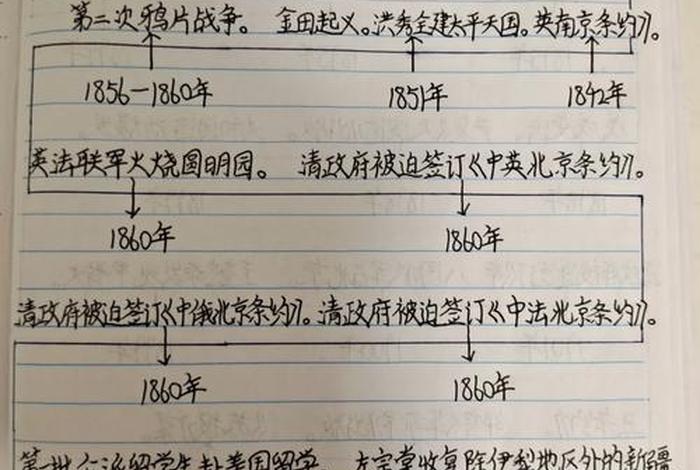 第二次鸦片战争。 金田起义。洪秀全建太平天国。英南京条约》。
1856—1860年 1851年 1842年
英法联军火烧圆明园。 清政府被迫签订《中英北京条约》。
1860年 1860年
清政府被迫签订《中俄北京条约》。清政府被迫签订《中法北京条约》。
1860年 1860年
第一批公派留学生赴美国留学。 左宗棠收复除伊犁地区外的新疆